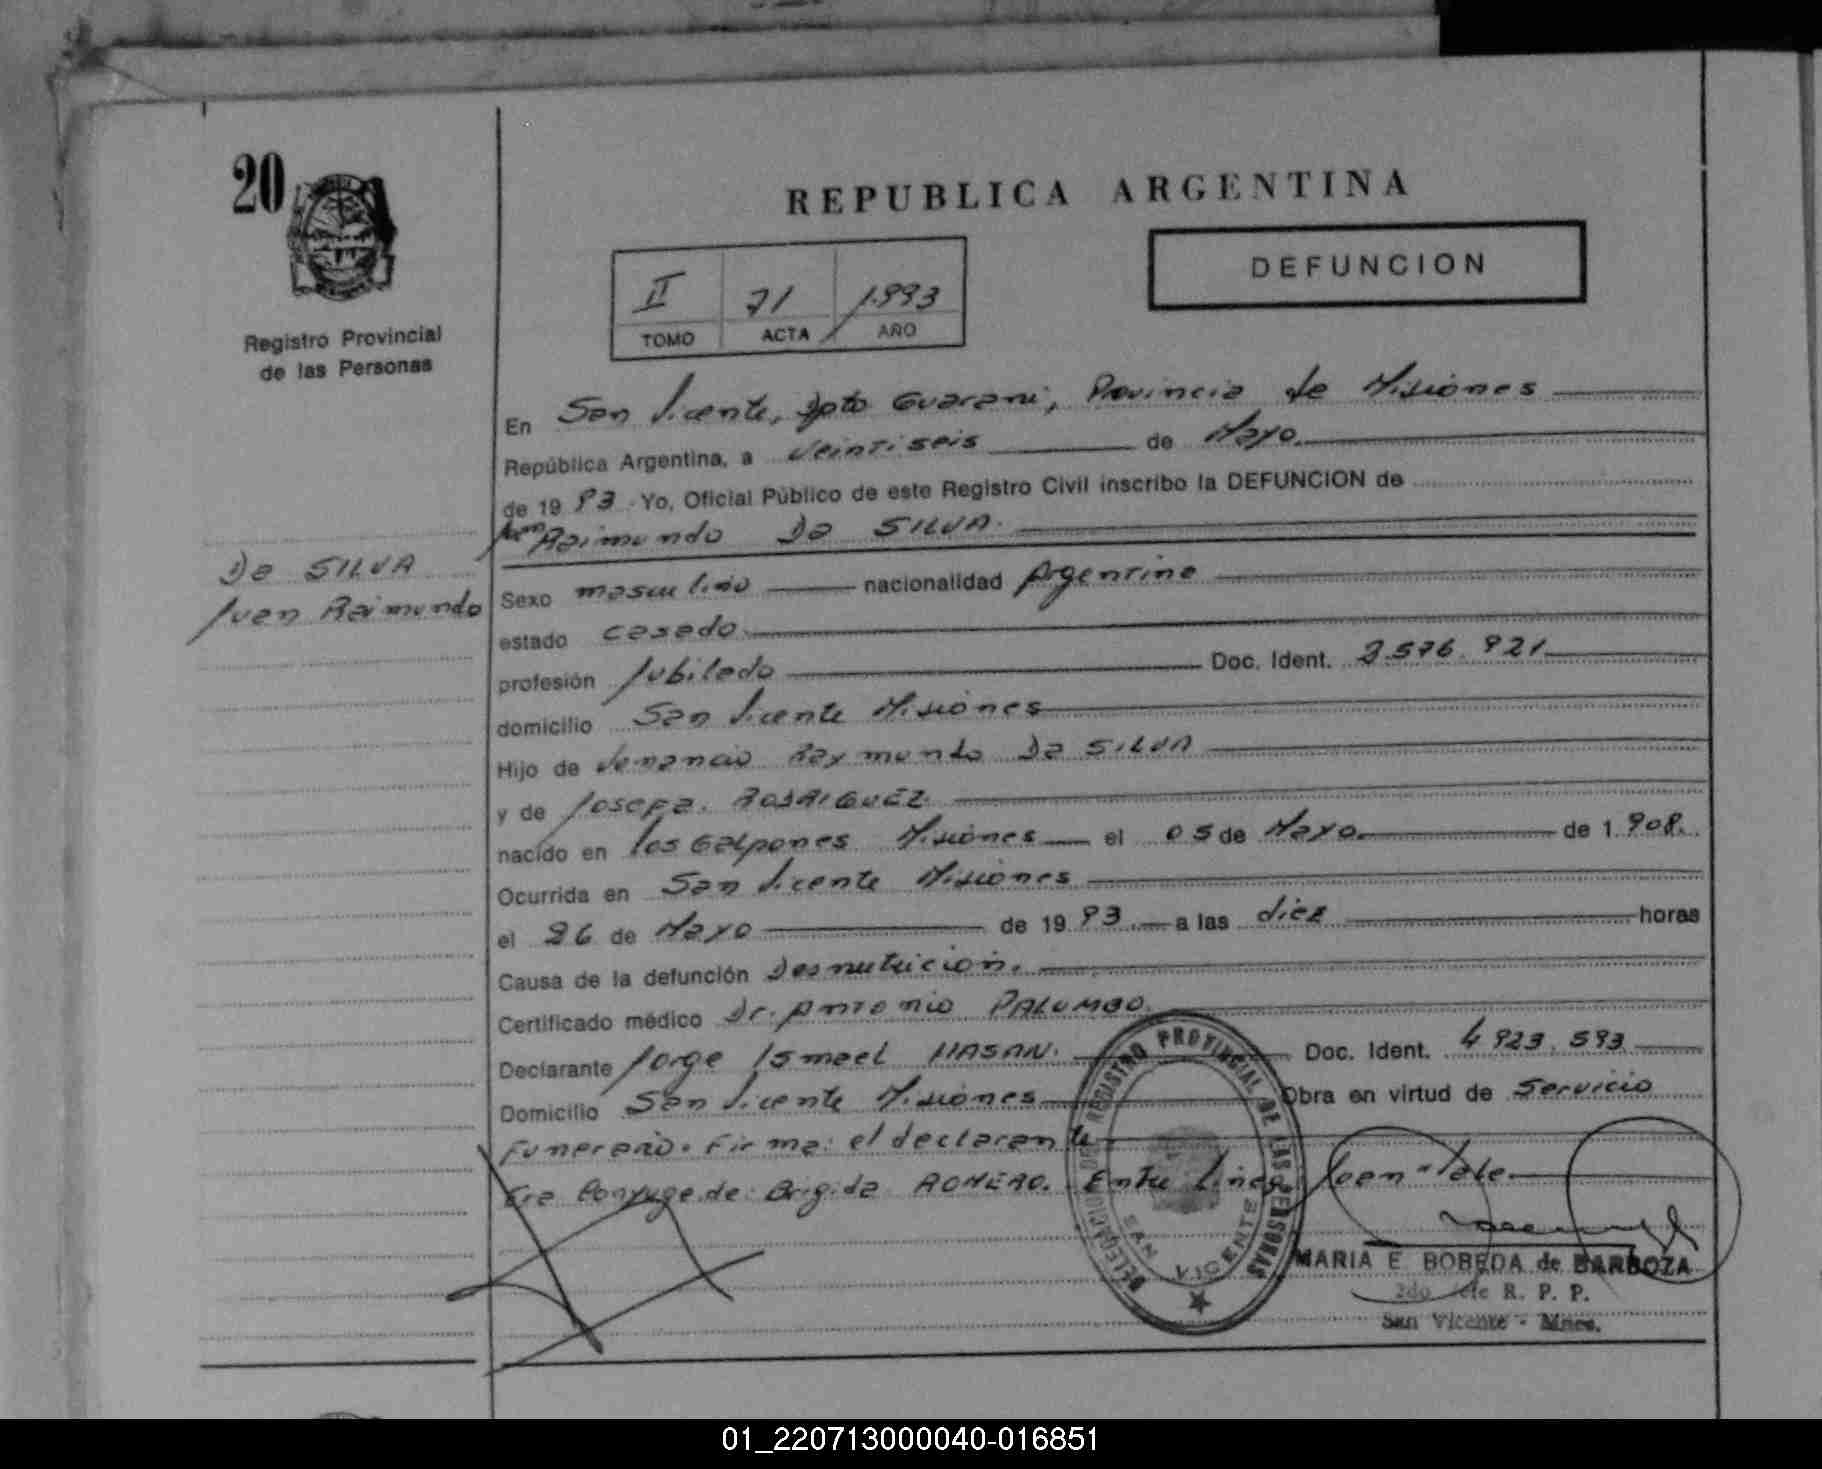 20
REPUBLICA ARGENTINA
DEFUNCION
II 71 1.993
TOMO ACTA AÑO
Registro Provincial
de las Personas
En San Vicente, Dpto Guarani, Provincia de Misiones
República Argentina, a veintiseis de Mayo
de 19 93 Yo, Oficial Público de este Registro Civil inscribo la DEFUNCION de
Juan Raimundo Da SILVA.
Da SILVA
Juan Raimundo
Sexo masculino nacionalidad Argentina
estado casado
profesión Jubilado Doc. Ident. 2.576.921
domicilio San Vicente Misiones
Hijo de Venancio Raymundo Da SILVA
y de Josefa RODRIGUEZ
nacido en los Galpones Misiones el 05 de Mayo de 1.908.
Ocurrida en San Vicente Misiones
el 26 de Mayo de 19 93 a las diez horas
Causa de la defunción Desnutricion.
Certificado médico Dr. Antonio PALUMBO.
Declarante Jorge Ismael HASAN. Doc. Ident. 4.923.593
Domicilio San Vicente Misiones Obra en virtud de Servicio
Funerario. Firma: el declarante
Era Conyuge de: Brigida ROMERO. Entre Linea: Juan "Vale.
DELEGACION DE REGISTRO PROVINCIAL DE LAS PERSONAS
SAN VICENTE
MARIA E. BOBEDA de BARBOZA
2do Jefe R. P. P.
San Vicente - Mnes.
01_220713000040-016851